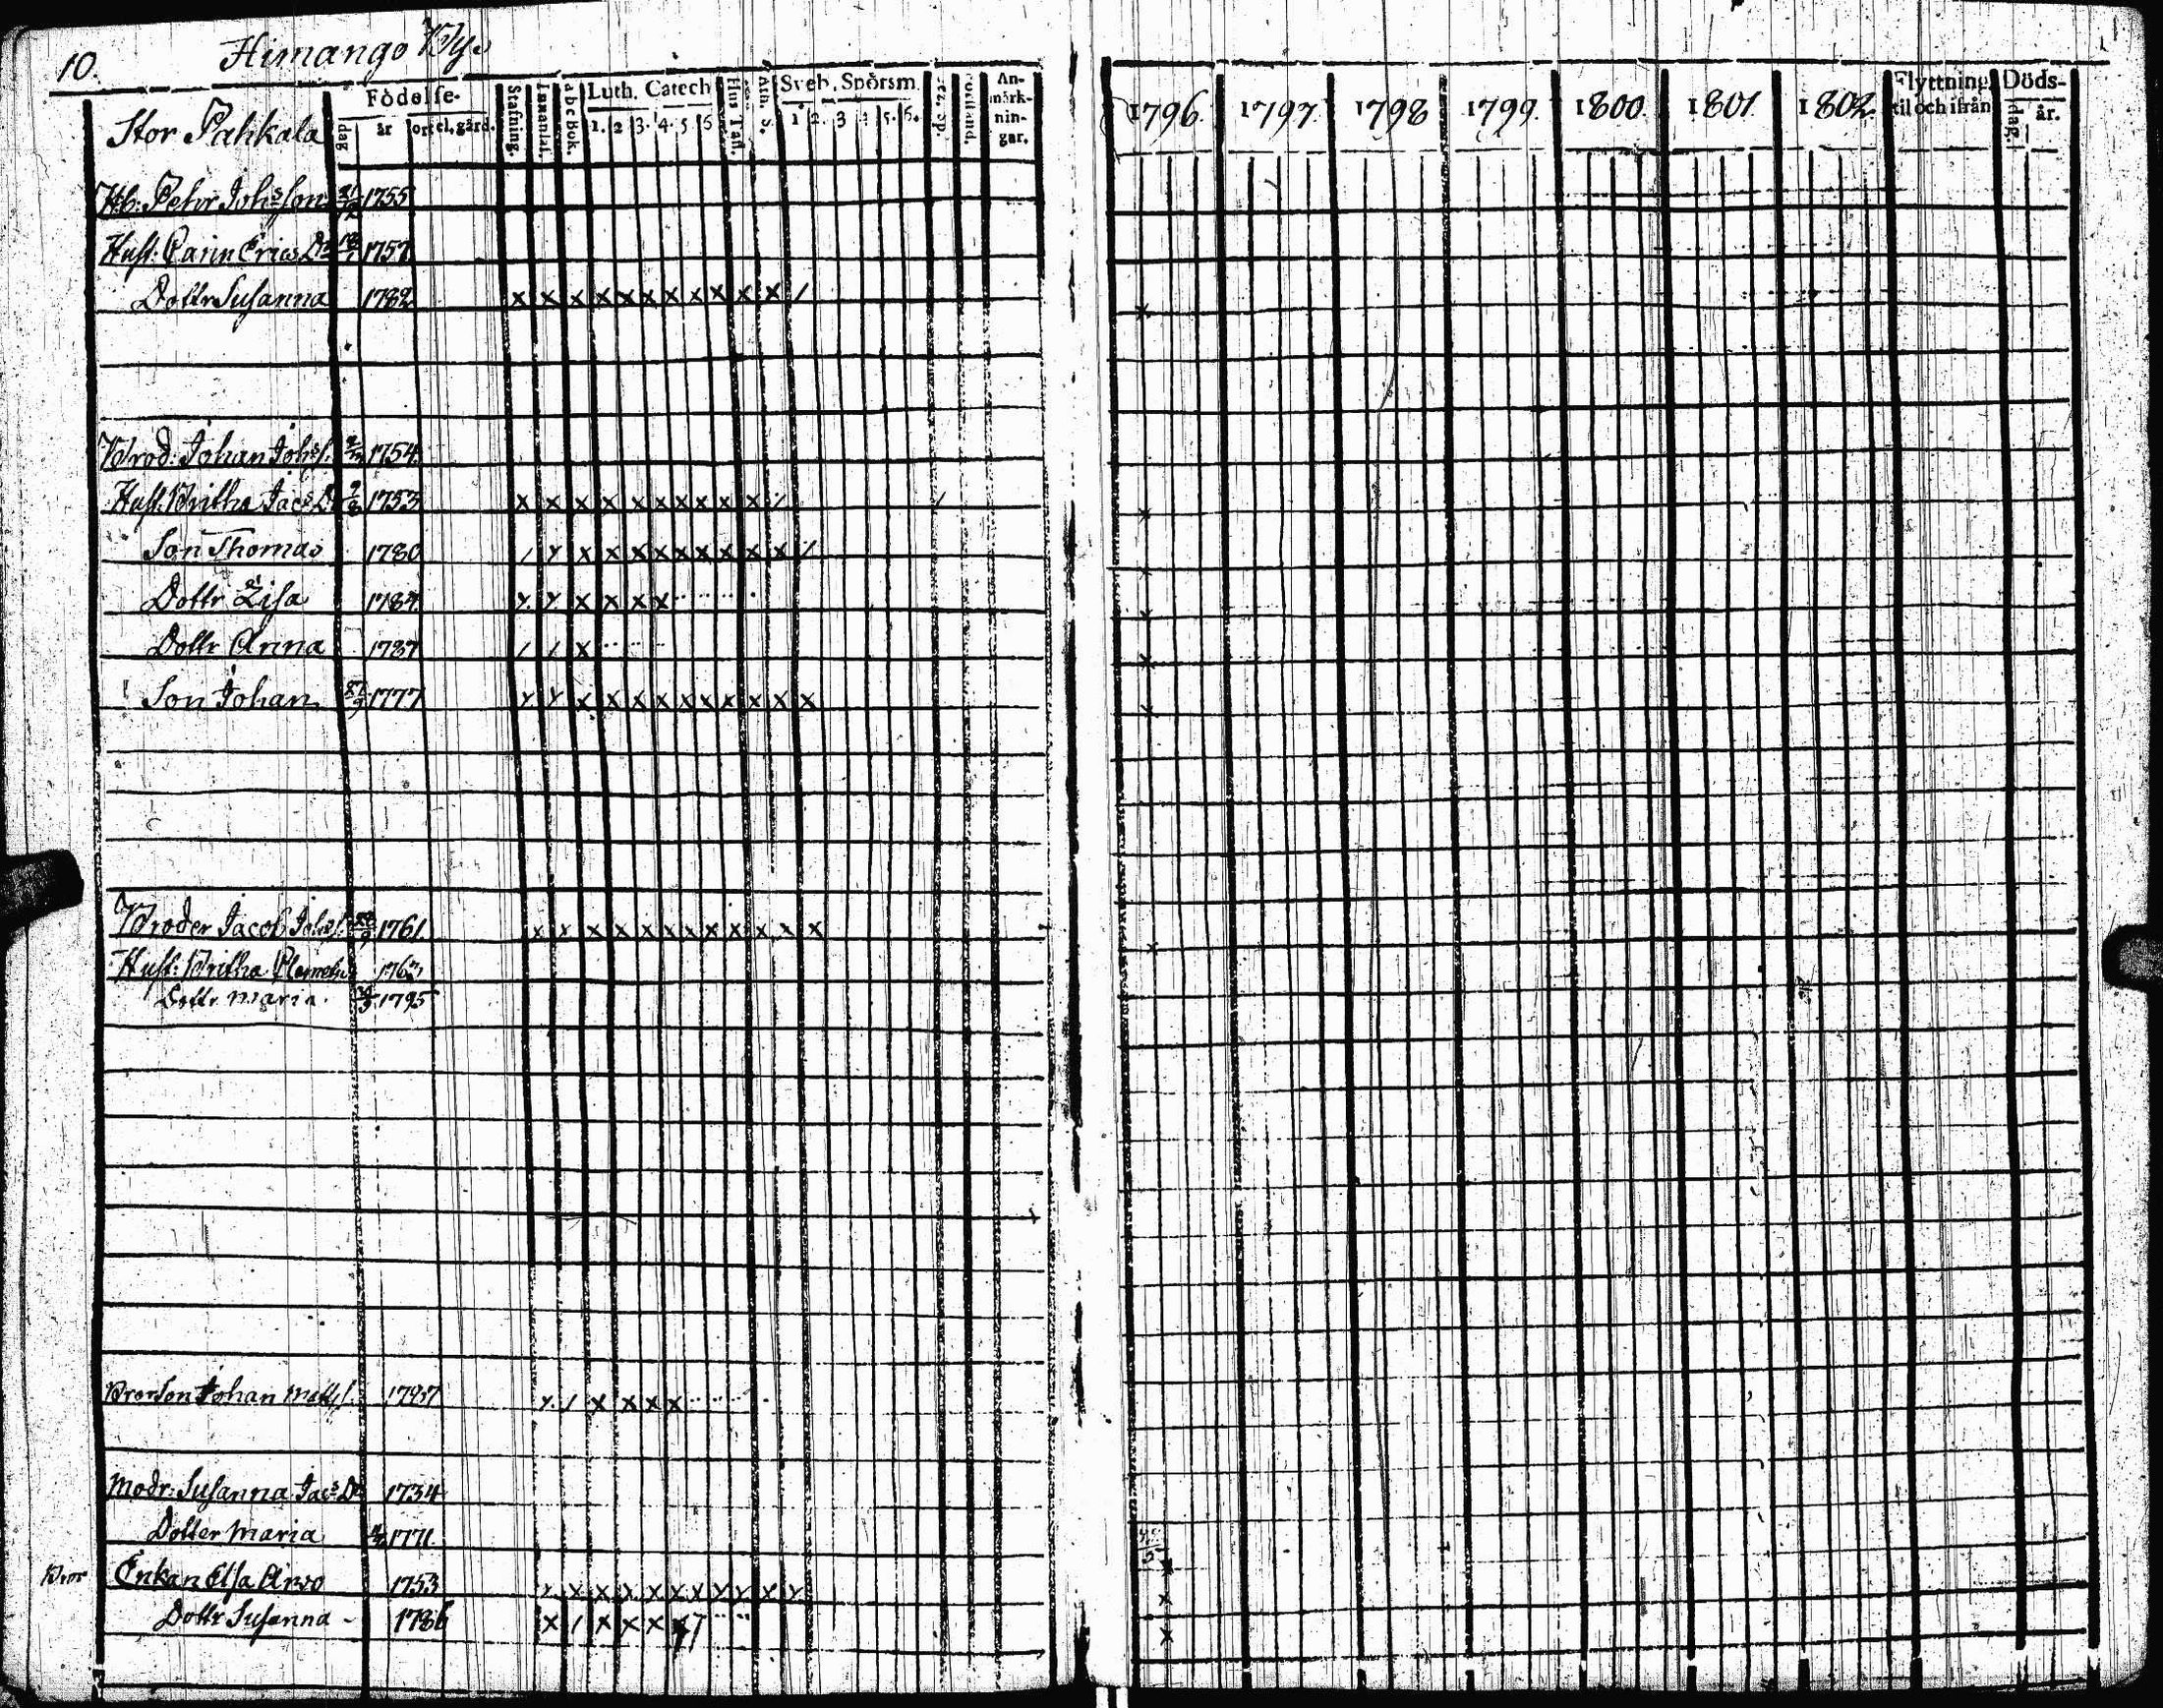 10. Himango By.
Stor Pahkala
Födelse-
dag år ort el. gård.
Stafning. Innanläs. abc Bok. Luth. Catech. Hus Tafl. Ath. S. Sveb. Spörsm. An-märk-nin-gar.
1. 2 3. 4. 5 6 1 2. 3 4 5. 6.
1796. 1797. 1798 1799. 1800. 1801. 1802. Flyttning til och ifrån Döds- dag. år.
Hb. Pehr Johsson 1755
Hust: Carin Erics Dr 1757
Dottr Susanna 1782
Brod: Johan Johs s. 1754
Hust. Britha Jacs D. 9/8 1753
Son Thomas 1780
Dottr Lisa 1784
Dottr Anna 1787
Son Johan 27/9 1777
Broder Jacob Johs s. 1761
Hust: Britha
Dottr Maria. 1795
Brorson Johan Matts s. 1787
Modr: Susanna Jacs Dr 1734
Dotter Maria 1771
Bror Enkan Elsa Arvo 1753
Dottr Susanna - 1786